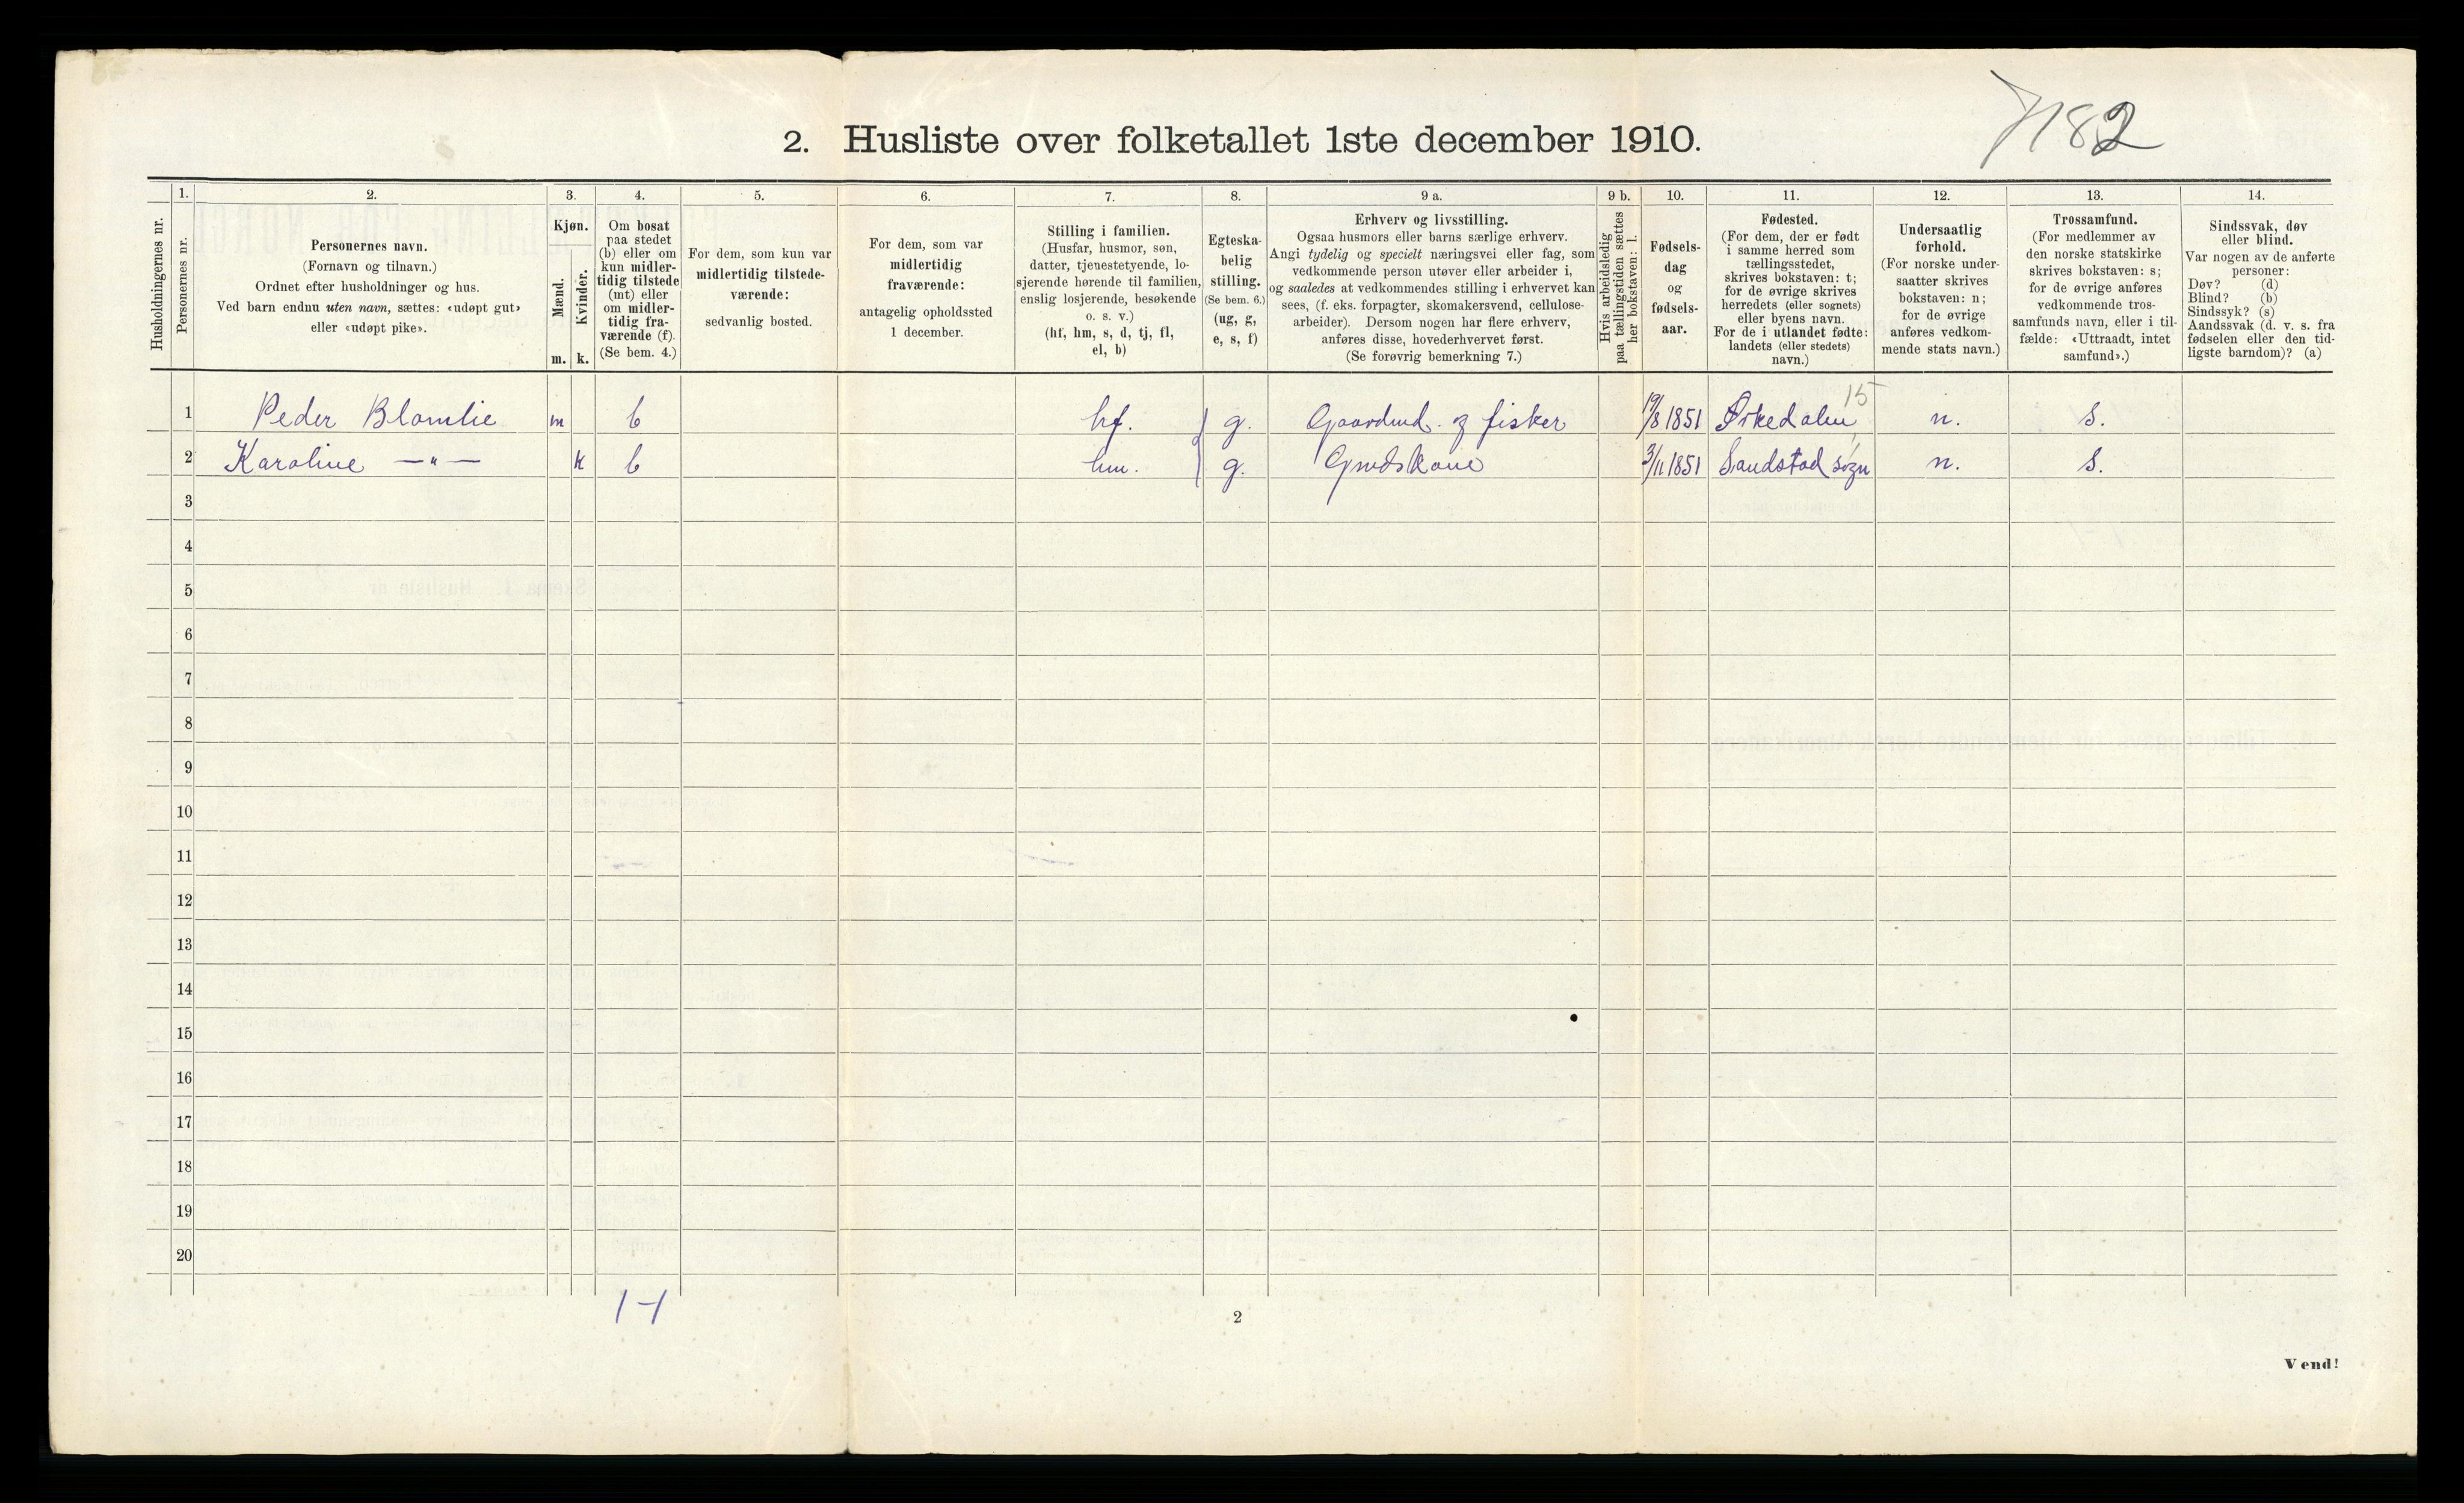 7182
2. Husliste over folketallet 1ste december 1910.
Husholdningernes nr.
1.
Personernes nr.
2.
Personernes navn.
(Fornavn og tilnavn.)
Ordnet efter husholdninger og hus.
Ved barn endnu uten navn, sættes: «udøpt gut»
eller «udøpt pike».
3.
Kjøn.
Mænd.
Kvinder.
m. k.
4.
Om bosat
paa stedet
(b) eller om
kun midler-
tidig tilstede
(mt) eller
om midler-
tidig fra-
værende (f).
(Se bem. 4.)
5.
For dem, som kun var
midlertidig tilstede-
værende:
sedvanlig bosted.
6.
For dem, som var
midlertidig
fraværende:
antagelig opholdssted
1 december.
7.
Stilling i familien.
(Husfar, husmor, søn,
datter, tjenestetyende, lo-
sjerende hørende til familien,
enslig losjerende, besøkende
o. s. v.)
(hf, hm, s, d, tj, fl,
el, b)
8.
Egteska-
belig
stilling.
(Se bem. 6.)
(ug, g,
e, s, f)
9 a.
Erhverv og livsstilling.
Ogsaa husmors eller barns særlige erhverv.
Angi tydelig og specielt næringsvei eller fag, som
vedkommende person utøver eller arbeider i,
og saaledes at vedkommendes stilling i erhvervet kan
sees, (f. eks. forpagter, skomakersvend, cellulose-
arbeider). Dersom nogen har flere erhverv,
anføres disse, hovederhvervet først.
(Se forøvrig bemerkning 7.)
9 b.
Hvis arbeidsledig
paa tællingstiden sættes
her bokstaven: l.
10.
Fødsels-
dag
og
fødsels-
aar.
11.
Fødested.
(For dem, der er født
i samme herred som
tællingsstedet,
skrives bokstaven: t;
for de øvrige skrives
herredets (eller sognets)
eller byens navn.
For de i utlandet fødte:
landets (eller stedets)
navn.)
12.
Undersaatlig
forhold.
(For norske under-
saatter skrives
bokstaven: n;
for de øvrige
anføres vedkom-
mende stats navn.)
13.
Trossamfund.
(For medlemmer av
den norske statskirke
skrives bokstaven: s;
for de øvrige anføres
vedkommende tros-
samfunds navn, eller i til-
fælde: «Uttraadt, intet
samfund».)
14.
Sindssvak, døv
eller blind.
Var nogen av de anførte
personer:
Døv? (d)
Blind? (b)
Sindssyk? (s)
Aandssvak (d. v. s. fra
fødselen eller den tid-
ligste barndom)? (a)
15
1 Peder Blomlie m b hf. g. Gaardmd. og fisker 19/8 1851 Ørkedalen n. s.
2 Karoline —"— k b hm. g. Gmdskone 3/11 1851 Sandstad sogn n. s.
3
4
5
6
7
8
9
10
11
12
13
14
15
16
17
18
19
20
1-1
2
Vend!